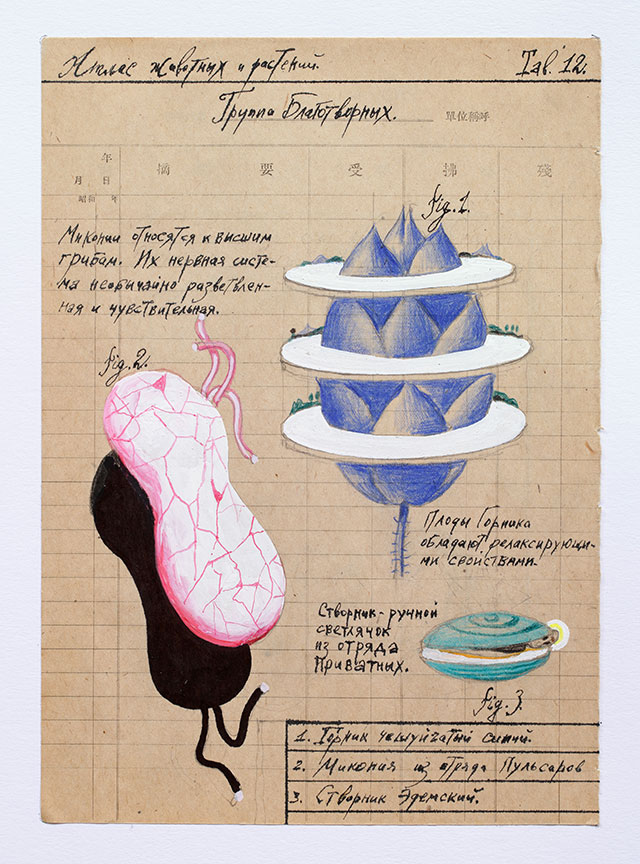 Атлас животных и растений.
Tab. 12.
Группа Благотворных.
單位稱呼
年
月 日
摘 要 受 拂 残
昭和 年
Fig. 1.
Микопии относятся к высшим
грибам. Их нервная систе-
ма необычайно разветвлен-
ная и чувствительная.
Fig. 2.
Плоды Горника
обладают релаксирующи-
ми свойствами.
Створник-ручной
светлячок
из отряда
Приватных.
Fig. 3.
1. Горник чешуйчатый синий.
2. Микопия из отряда Пульсаров
3. Створник Эдемский.